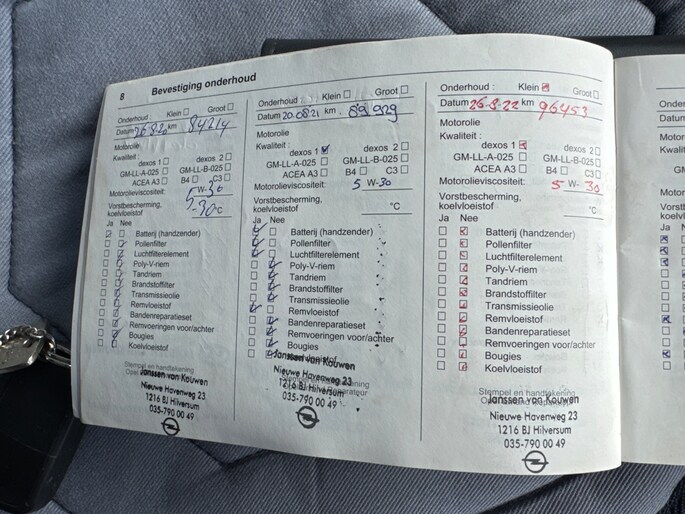 8 Bevestiging onderhoud
Klein Groot
Datum 26-8-20 km 84214
Motorolie
Kwaliteit
dexos 1 dexos 2
GM-LL-A-025 GM-LL-B-025
ACEA A3 B4 C3
Motorolieviscositeit: 5 W-30
Vorstbescherming,
koelvloeistof -30°C
Ja Nee
Batterij (handzender)
Pollenfilter
Luchtfilterelement
Poly-V-riem
Tandriem
Brandstoffilter
Transmissieolie
Remvloeistof
Bandenreparatieset
Remvoeringen voor/achter
Bougies
Koelvloeistof
Stempel en handtekening
Janssen van Kouwen
Nieuwe Havenweg 23
1216 BJ Hilversum
035-790 00 49
Onderhoud : Klein Groot
Datum 20.08.21 km 89929
Motorolie
Kwaliteit :
dexos 1 dexos 2
GM-LL-A-025 GM-LL-B-025
ACEA A3 B4 C3
Motorolieviscositeit: 5 W-30
Vorstbescherming,
koelvloeistof °C
Ja Nee
Batterij (handzender)
Pollenfilter
Luchtfilterelement
Poly-V-riem
Tandriem
Brandstoffilter
Transmissieolie
Remvloeistof
Bandenreparatieset
Remvoeringen voor/achter
Bougies
Janssen van Kouwen
Nieuwe Havenweg 23
1216 BJ Hilversum
035-790 00 49
Onderhoud : Klein Groot
Datum 26-8-22 km 96453
Motorolie
Kwaliteit :
dexos 1 dexos 2
GM-LL-A-025 GM-LL-B-025
ACEA A3 B4 C3
Motorolieviscositeit: 5 W- 30
Vorstbescherming,
koelvloeistof °C
Ja Nee
Batterij (handzender)
Pollenfilter
Luchtfilterelement
Poly-V-riem
Tandriem
Brandstoffilter
Transmissieolie
Remvloeistof
Bandenreparatieset
Remvoeringen voor/achter
Bougies
Koelvloeistof
Stempel en handtekening
Janssen van Kouwen
Nieuwe Havenweg 23
1216 BJ Hilversum
035-790 00 49
Datum
Motor
Ja